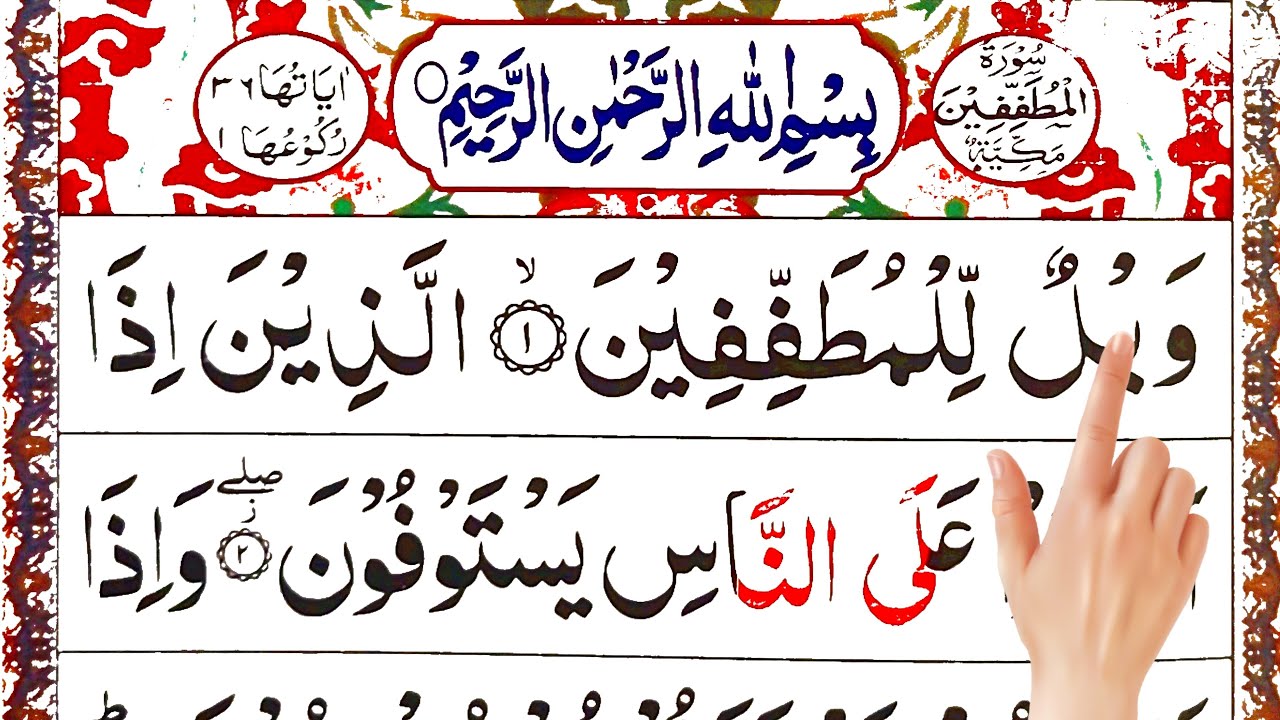 سُوْرَةُ
الْمُطَفِّفِيْنَ
مَكِّيَّةٌ
بِسْمِ اللّٰهِ الرَّحْمٰنِ الرَّحِيْمِ
اٰيَاتُهَا ٣٦
رُكُوْعُهَا ١
وَيْلٌ لِّلْمُطَفِّفِيْنَ ١ۙ الَّذِيْنَ اِذَا
عَلَى النَّاسِ يَسْتَوْفُوْنَ ٢ صلے ز وَاِذَا